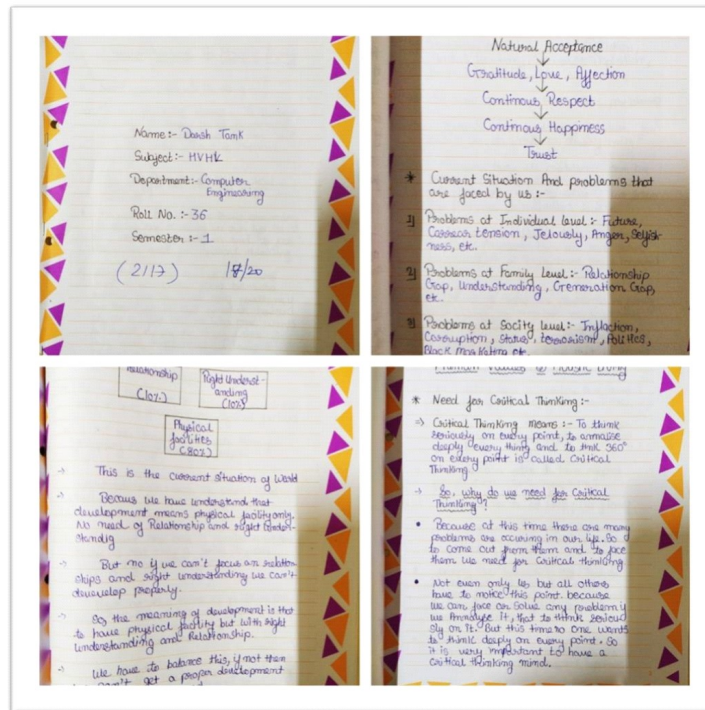 Name:- Darsh Tank
Subject:- HVHL
Department:- Computer
Engineering
Roll No. :- 36
Semester :- 1
(2117)
18/20
Natural Acceptance
Gratitude, Love, Affection
Continous Respect
Continous Happiness
Trust
* Current Situation And problems that
are faced by us :-
1) Problems at Individual level :- Future,
Carrear tension, Jelously, Anger, Selfish-
ness, etc.
2) Problems at Family Level :- Relationship
Gap, Understanding, Generation Gap,
etc.
3) Problems at Socity level:- Inflaction,
Corruption, Status, terrorism, Politics,
Black marketing etc.
relationship
(10%)
Right Underst-
anding
(10%)
Physical
facilities
(80%)
→ This is the current situation of World
→ Becaus we have understand that
development means physical facility only.
No need of Relationship and right Under-
standig
→ But no if we can't focus on relation
ships and right understanding we can't
develop properly.
→ So the meaning of development is that
to have physical facility but with right
understanding and Relationship.
→ We have to balance this, if not then
we can't get a proper development
* Need for Critical Thinking :-
⇒ Critical Thinking means :- To think
seriously on every point, to annalise
deeply every thing and to think 360°
on every point is called Critical
Thinking
→ So, why do we need for Critical
Thinking ?
• Because at this time there are many
problems are occuring in our life. So
to come out from them and to face
them we need for Critical thinking.
• Not even only us but all others
have to notice this point. because
we can face or Solve any problem if
we Annalyse it, that to think seriou
sly on it. But this time no one wants
to think deeply on every point. So
it is very important to have a
critical thinking mind.